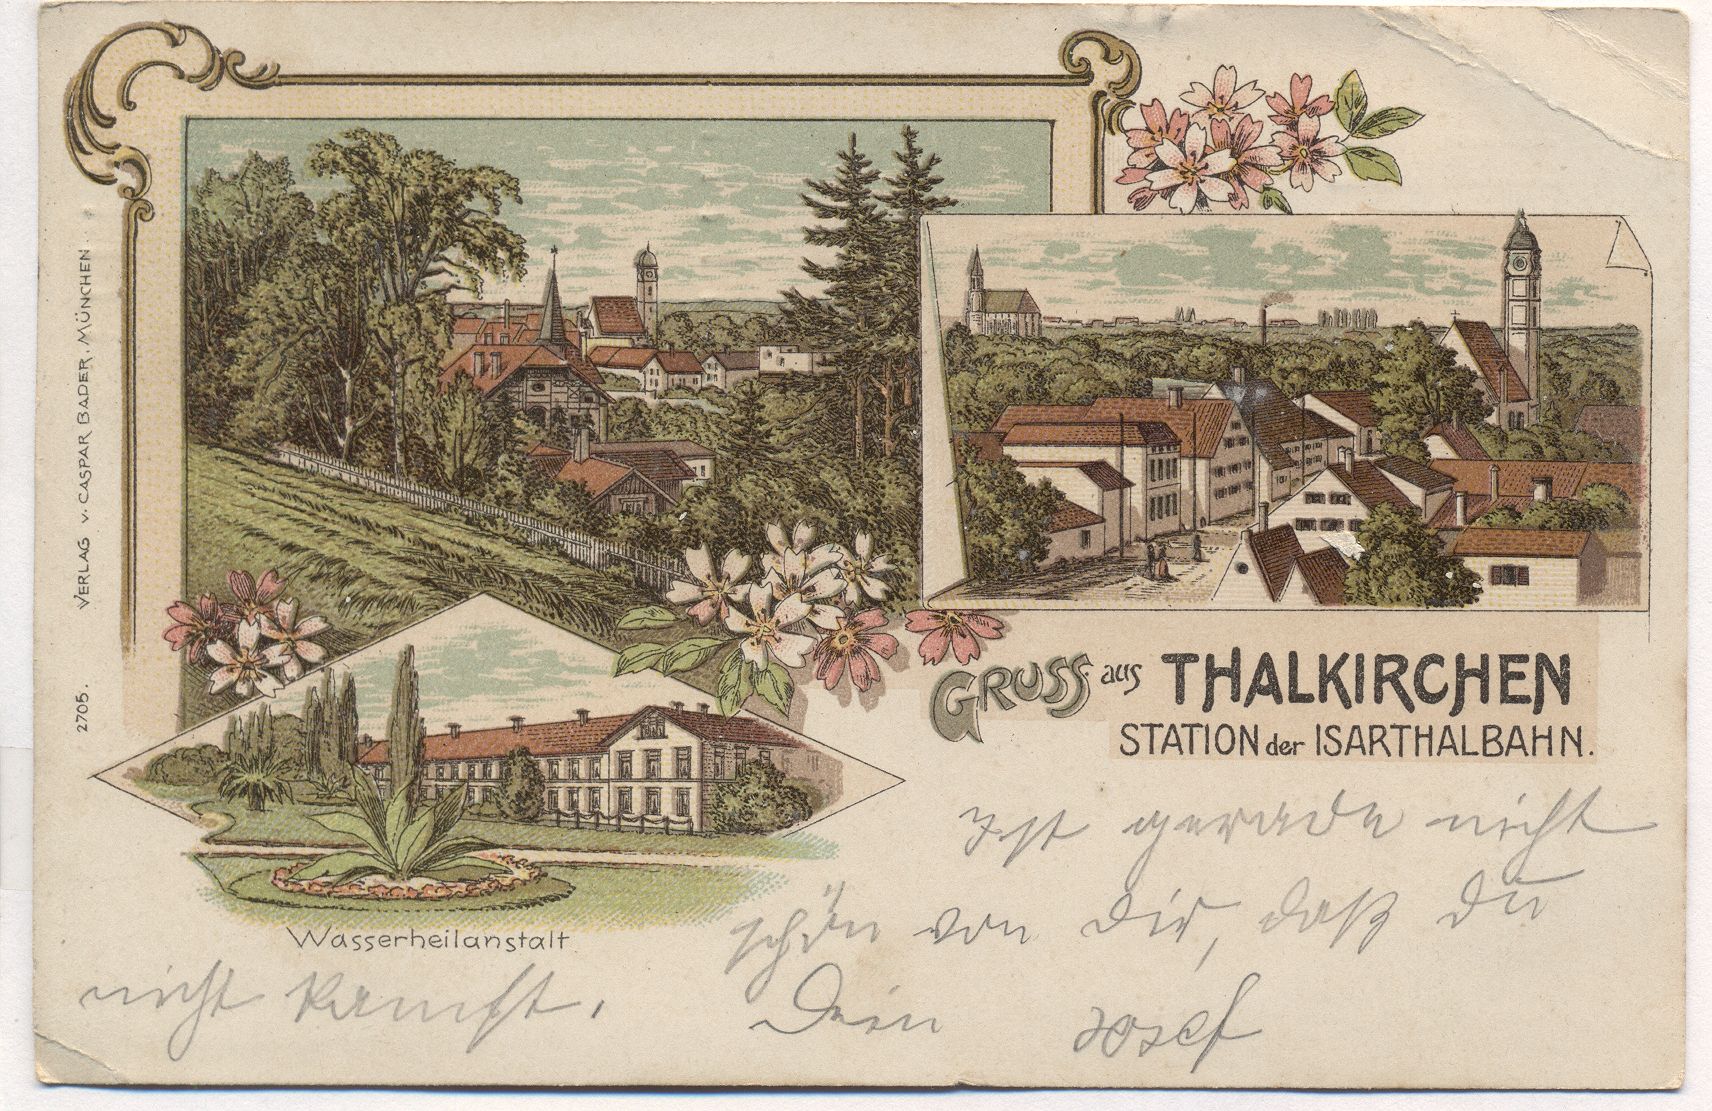 VERLAG v. CASPAR BADER, MÜNCHEN.
2705.
GRUSS aus THALKIRCHEN
STATION der ISARTHALBAHN.
Wasserheilanstalt
Ist gerade nicht
schön von Dir, daß Du
nicht kamst.
Dein Josef